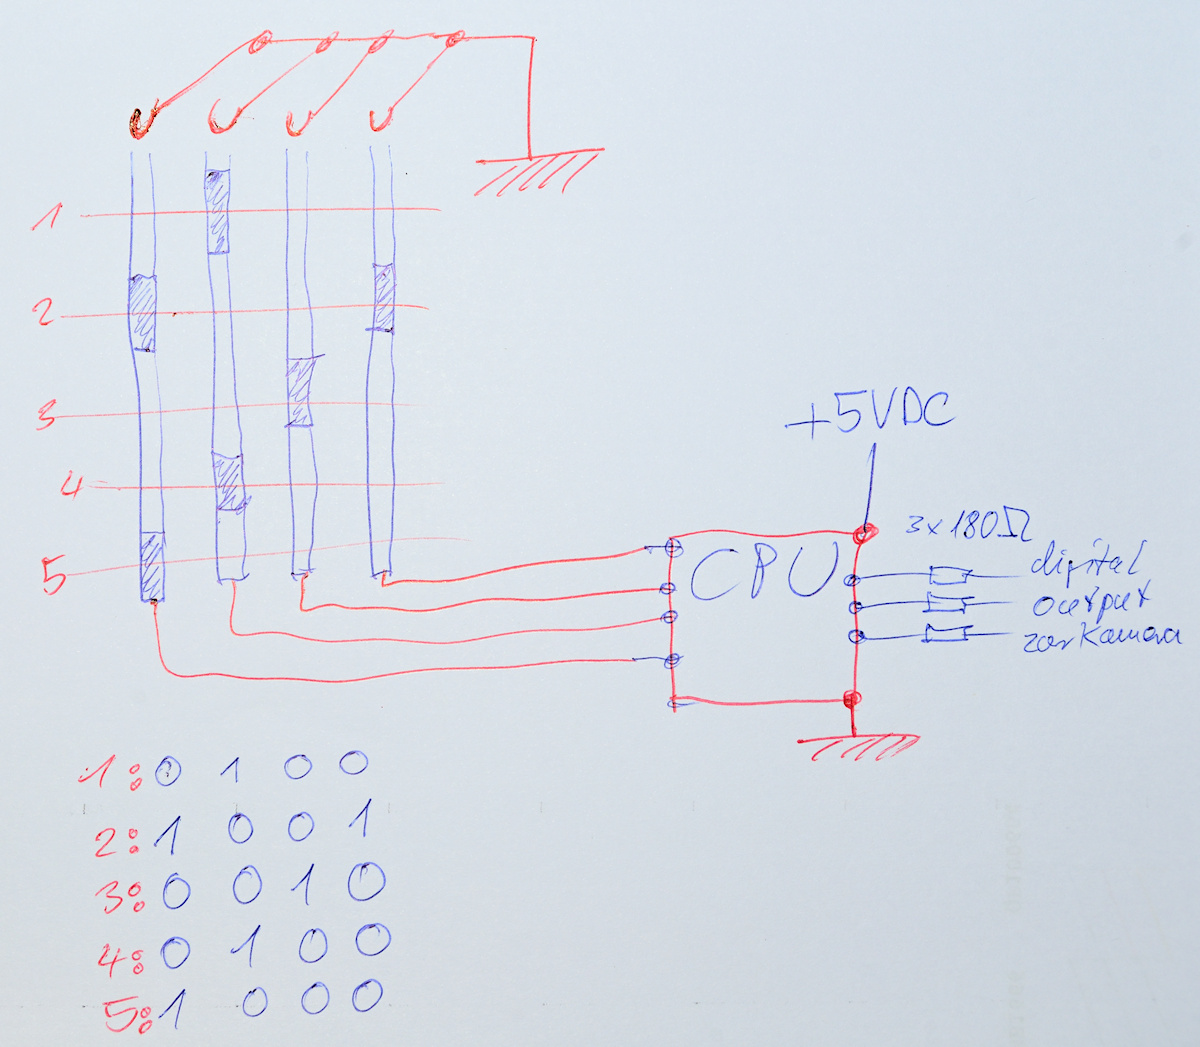 1
2
3
4
5
+5VDC
3x180Ω
CPU
digital
output
zar Kamera
1: 0 1 0 0
2: 1 0 0 1
3: 0 0 1 0
4: 0 1 0 0
5: 1 0 0 0